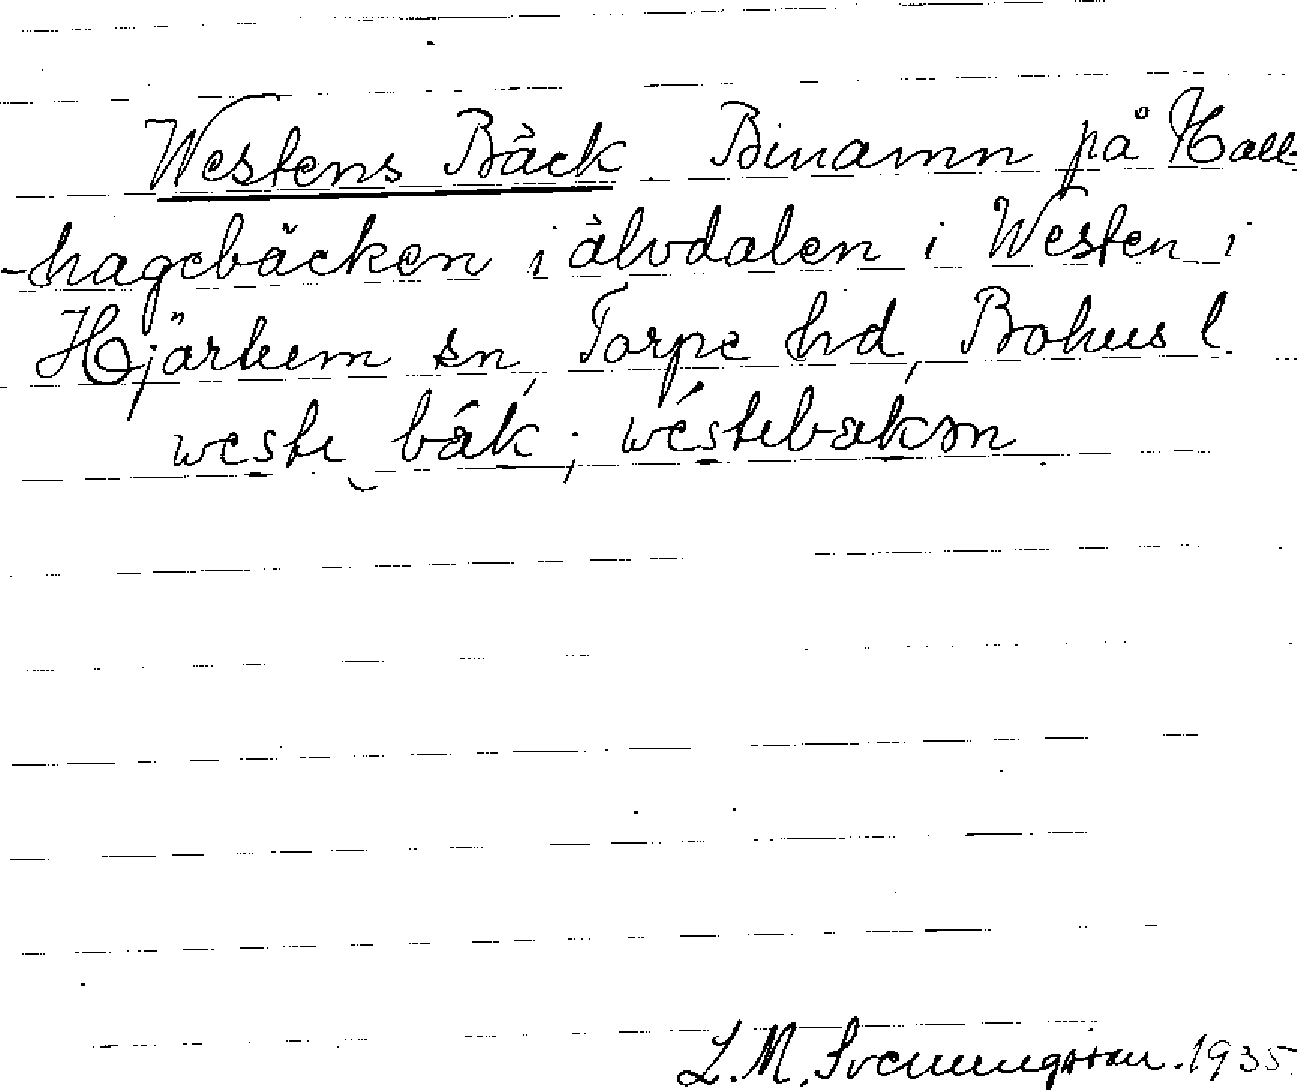 Westens Bäck. Binamn på Hall-
-hagebäcken i älvdalen i Westen i
Hjärtum sn, Torpe hd, Bohus l.
weste bäk; wéstebäkən
L. M. Svenungsson. 1935.